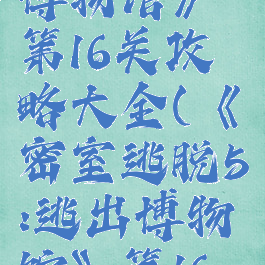 博物馆》
第16关攻
略大全(《
密室逃脱5
:逃出博物
馆》第16